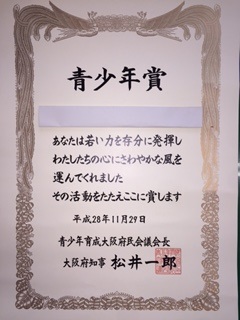 青少年賞
あなたは若い力を存分に発揮し
わたしたちの心にさわやかな風を
運んでくれました
その活動をたたえここに賞します
平成28年11月29日
青少年育成大阪府民会議会長
大阪府知事 松井一郎